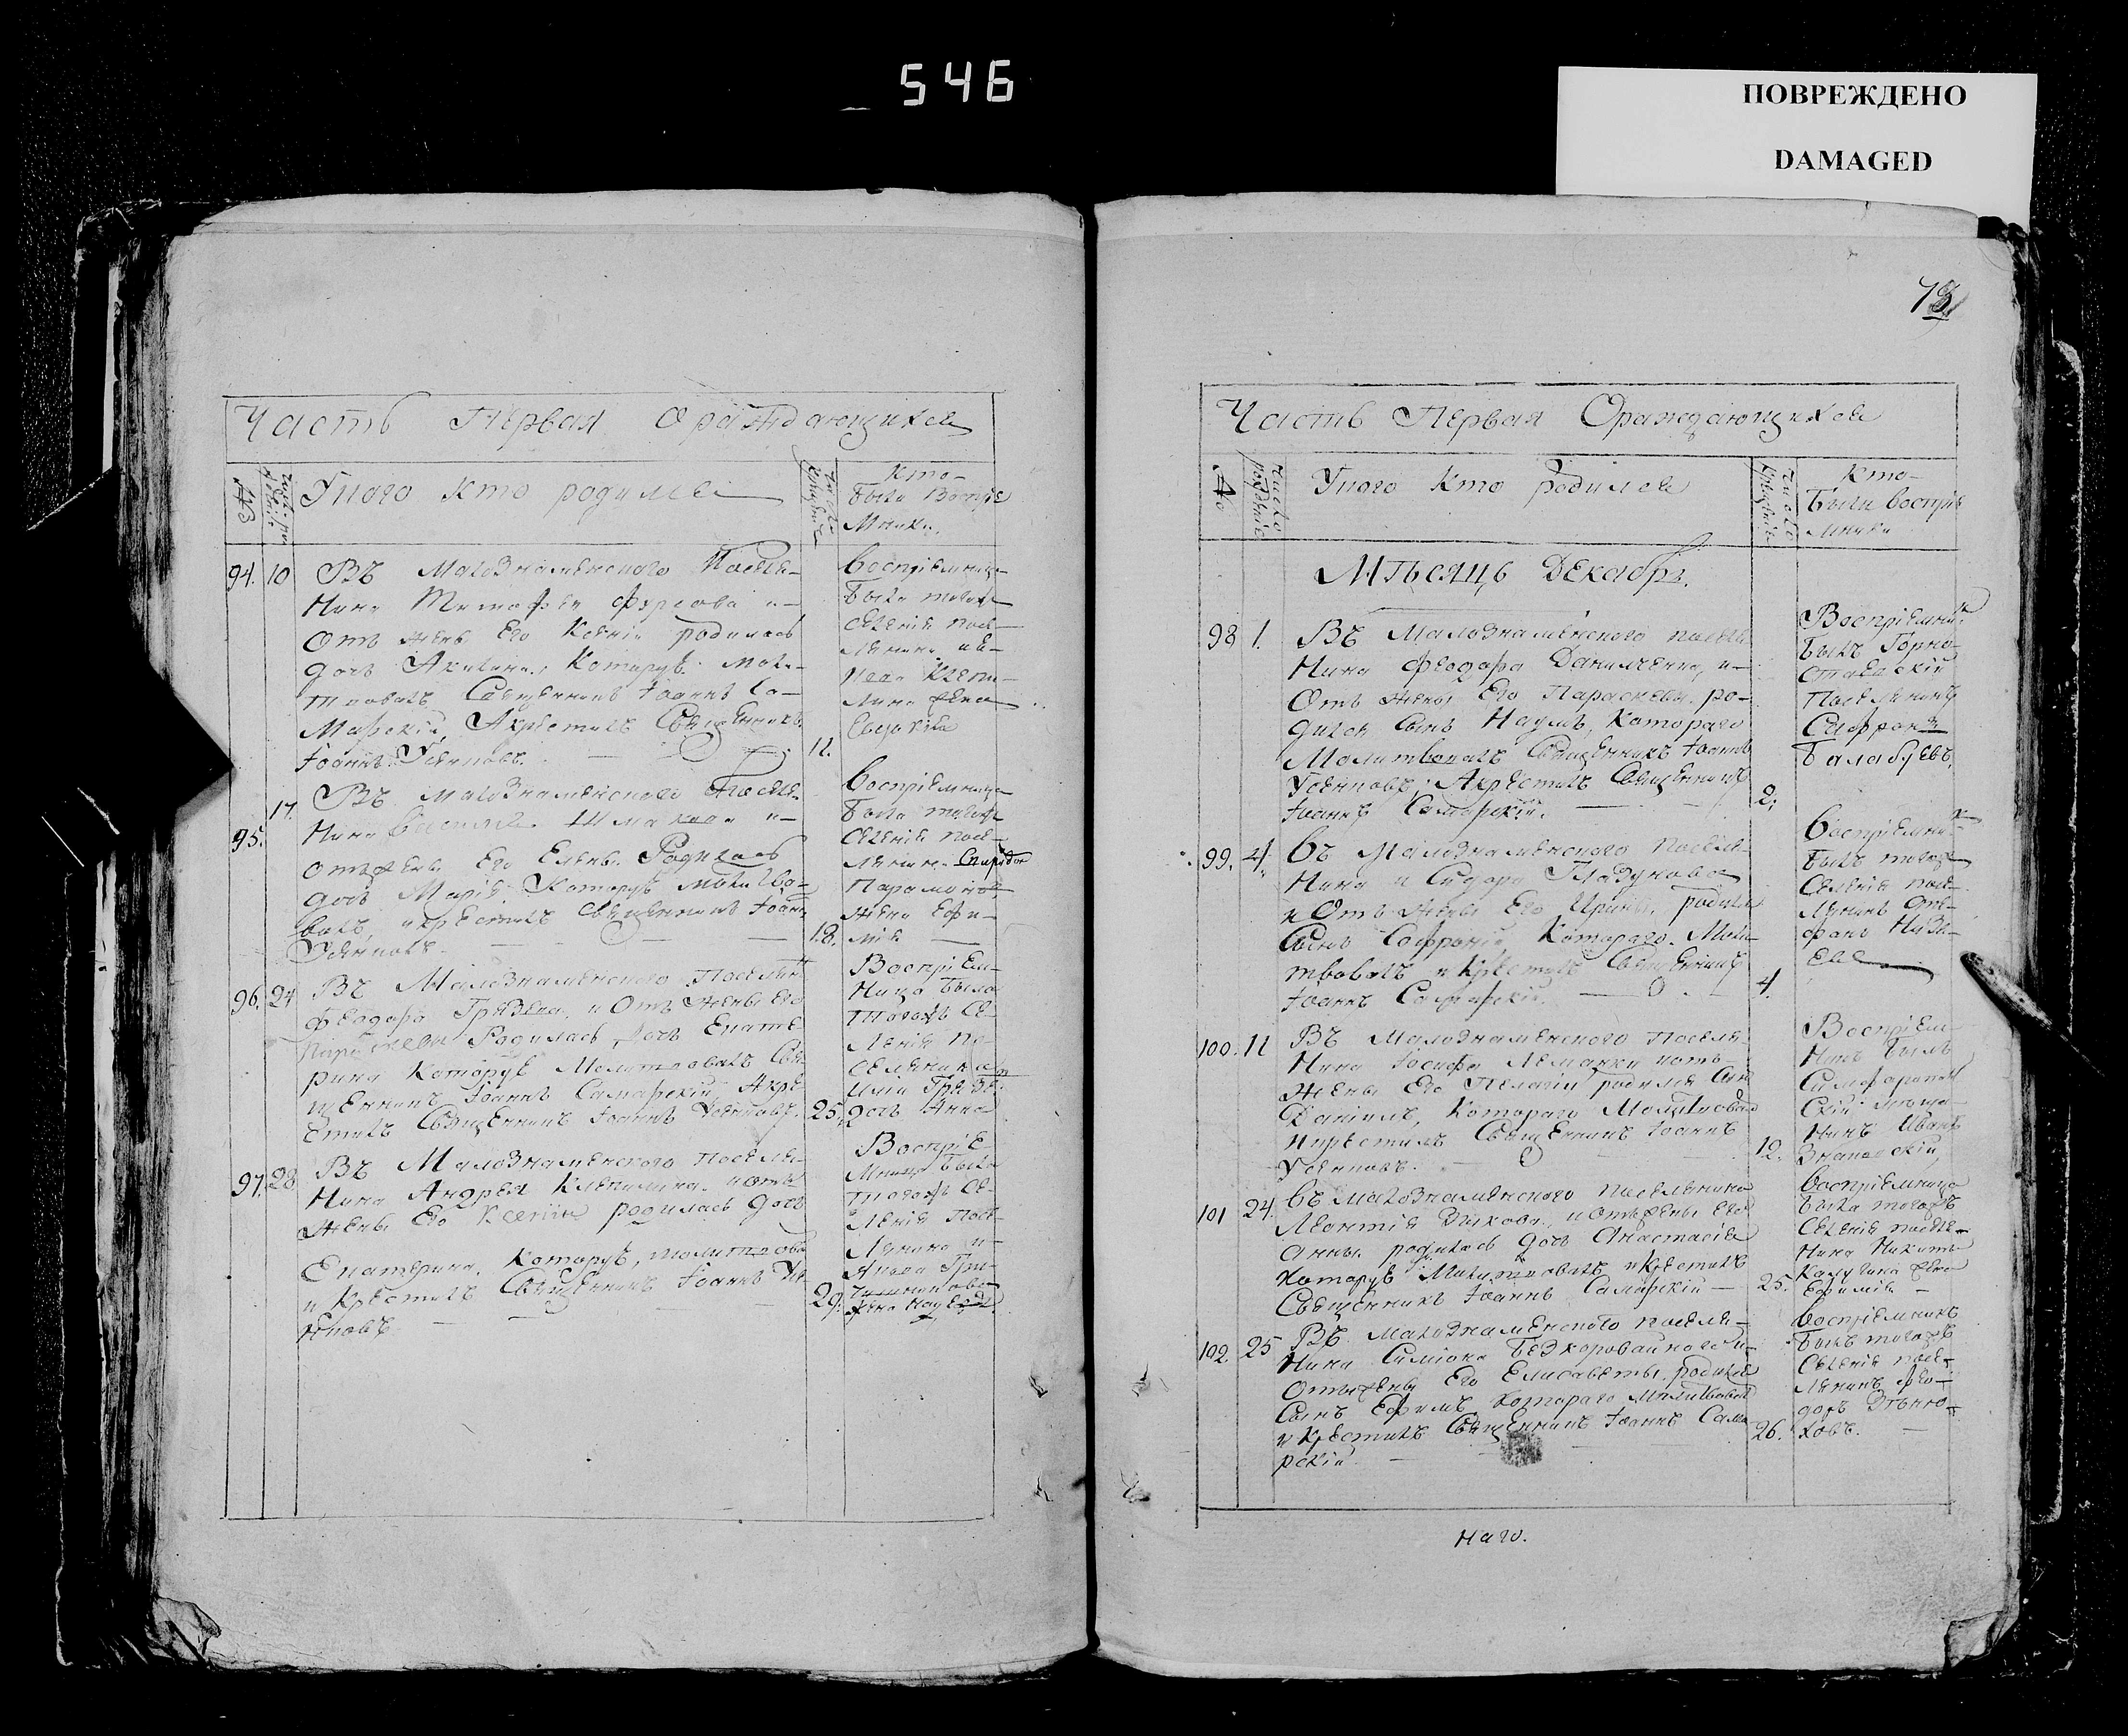 546
ПОВРЕЖДЕНО
DAMAGED
Часть Первая Ораждающихся
Уного кто родился
Кто
Были Воспрiе
мники
94. 10 Въ Малознаменского Поселе-
нина Тимофея Фурсова и
Отъ жены Его Ксенiи родилась
дочь Акилина, Которую моли-
твовалъ Священникъ Iоаннъ Са-
марскiй, Акрестилъ Священникъ
Iоаннъ Усенповъ. 11.
Воспрiемница
была тогожъ
Селенiя посе-
лянина
жена
Евдокiя
17. Въ Малознаменского Поселе-
95. нина Василiя и
отжены Его Елены Родилась
дочь Марiя Которую молитво-
валъ, икрестилъ Священникъ Iоаннъ
Усенповъ. 18.
Воспрiемница
была тогожъ
Селенiя посе-
лянина Спиридон
Парамонов
жена Ефи-
мiя
96. 24 Въ Малознаменского Поселян
Феодора Грязева, и Отъ жены Его
Параскеви Родилась дочь Екате
рина Которую Молитвовалъ Свя
щенникъ Iоаннъ Самарскiй, Акре
стилъ Священникъ Iоаннъ Усенповъ. 25.
Воспрiем-
ница была
тогожъ Се-
ленiя по-
селянина
Илiи Грязе.
дочь Анна
97. 28 Въ Малознаменского поселя-
нина Андрея Клепилина иотъ
жены Его Ксенiи родилась дочь
Екатерина, Которую, молитвова
и Крестилъ Священникъ Iоаннъ Усе
нповъ. 29.
Воспрiе
мница была
тогожъ Се-
ленiя Посе-
лянина
жена
73
Часть Первая Ораждающихся
№ Число рожденiе Уного Кто родился Число крещенiе
Кто
Были воспрiе
мники
Мѣсяцъ Декабрь.
98 1. Въ Малознаменского поселя
нина Феодора Данильченка, и
Отъ жены Его Параскевы, ро-
дился Сынъ Наумъ, Котораго
Молитвовалъ Священникъ Iоаннъ
Усенповъ, Акрестилъ Священникъ
Iоаннъ Самарскiй. 2.
Воспрiемник
былъ Горно-
стаевскiй
Поселянинъ
Софронiй
Балабуевъ.
99. 4. Въ Малознаменского поселя
нина и Сидора Гладунова
и Отъ Жены Его Ирины, родился
Сынъ Софронiй Котораго Моли-
твовалъ и Крестилъ Священникъ
Iоаннъ Самарскiй. 4.
Воспрiемник
былъ тогожъ
Селенiя посе-
лянинъ Сте-
фанъ
100. 11 Въ Малознаменского Поселя
нина Iосифа Лемашки иотъ
жены Его Пелагiи родился Сынъ
Данiилъ, Котораго Молитвовал
икрестилъ Священникъ Iоаннъ
Усенповъ. 12.
Воспрiем-
никъ былъ
Симферополь
скiй мѣща-
нинъ Иванъ
101 24. Въ Малознаменского поселянина
Леонтiя Быкова, и Отжены Его
Анны родилась дочь Анастасiя
Которую Молитвовалъ икрестилъ
Священникъ Iоаннъ Самарскiй 25.
Воспрiемница
была тогожъ
Селенiя поселя-
нина Никиты
Калугина жена
Ефимiя
102. 25 Въ Малознаменского поселя-
нина Симiона Безкоровайнаго и
Отжены Его Елисаветы родился
Сынъ Ефимъ котораго Молитвовал
и Крестилъ Священникъ Iоаннъ Сама
рскiй. 26.
Воспрiемникъ
былъ тогожъ
Селенiя посе-
лянинъ Фео-
доръ Зѣнко-
ховъ.
наго.